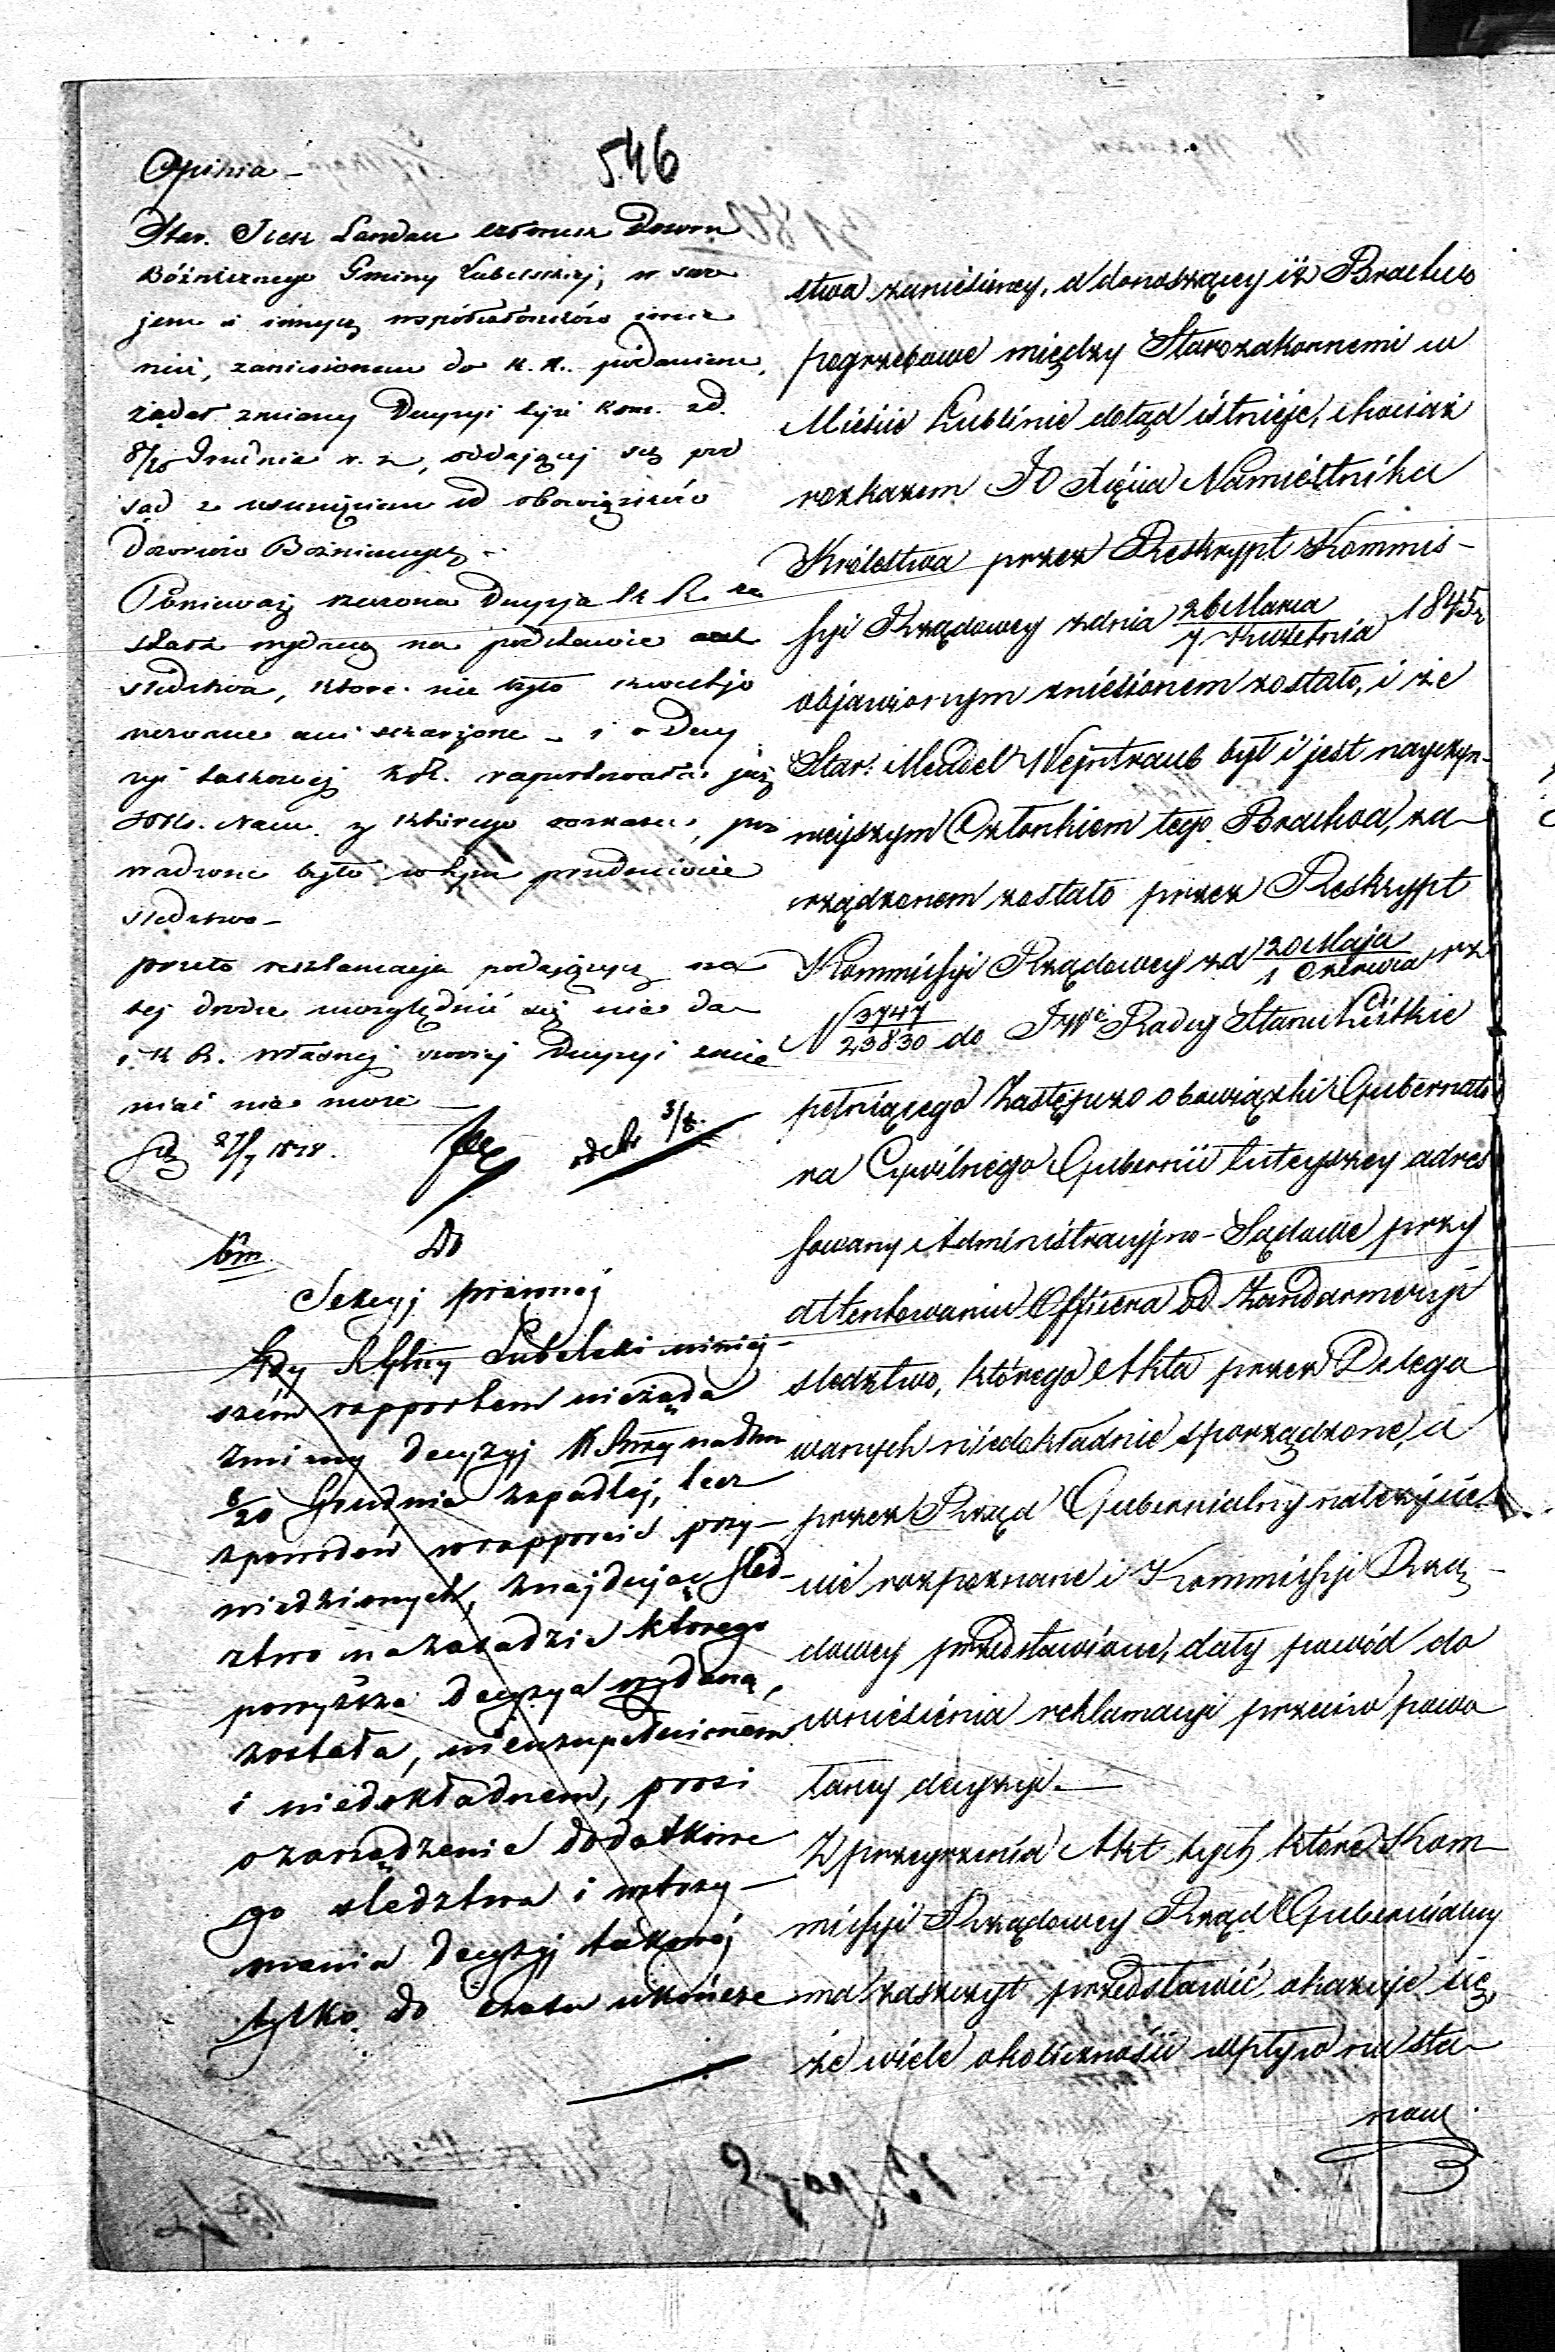 546
Opinia –
Star. Icek Landau członek Dozoru
Bóżniczego Gminy Lubelskiej, w swo
jem i innych współczłonków imie
niu, zaniesionem do K. R. podaniem,
żądał zmiany Decyzyi tejże Kom. zd.
8/20 Grudnia r. z., oddającej ich pod
sąd z usunięciem od obowiązków
Dozorców Bożniczych –
Ponieważ rzeczona Decyzja K R. zo
stała wydaną na podstawie
śledztwa, które nie było zakwestjo
nowane ani skarżone – i o Decy
zyi takowej już
Nam. z którego rozkazu, pro
wadzone było w tym przedmiocie
śledztwo –
przeto reklamacja podających na
tej drodze uwzględnić się nie da
i K R. własnej swojej Decyzyi zmie
niać nie może –
27/7 1848.
odebr 3/8.
bm. Do
Sekcyj prawnej
Gdy R Gblny Lubelski niniej–
szém rapportem nieżąda
zmiany decyzyj K Rząd. nadniu
8/20 Grudnia zapadłej, lecz
zpowodów wrapporcie przy–
wiedzionych, znajdując śled–
ztwo na zasadzie którego
powyższa decyzya wydaną,
została, nieuzupełnioném
i niedokładnem, prosi
o zarządzenie dodatkowe
go śledztwa i wstrzy–
mania decyzyj takowéj
tylko do czasu ukończe
stwa zaniesioney, a donoszącey iż Bractwo
pogrzebowe między Starozakonnemi w
Mieście Lublinie dotąd istnieje, chociaż
rozkazem JO Xięcia Namiestnika
Królestwa przez Reskrypt Kommis–
syi Rządowey zdnia 26 Marca / 7 Kwietnia 1845 r
objawionym zniesionem zostało, i że
Star: Mendel Wejntraub był i jest nayczyn–
niejszym Członkiem tego Bractwa, za
rządzonem zostało przez Reskrypt
Kommissyi Rządowey zd 20 Maja / 1 Czerwca r z
N 3747 / 23830 do JWgo Radcy Stanu
pełniącego Zastępczo obowiązki Gubernato
ra Cywilnego Gubernii tuteyszey adres
sowany Administracyjno–Sądowe przy
attentowaniu Officera od Żandarmeryi
śledztwo, którego Akta przez Delego
wanych niedokładnie sporządzone, a
przez Rząd Gubernialny należycie
nie rozpoznane i Kommissyi Rzą–
dowey przedstawione, dały powód do
wniesienia reklamacyi przeciw powo
łaney decyzyi. –
Z przeyrzenia Akt tych które Kom–
missyi Rządowey Rząd Gubernialny
ma zaszczyt przedstawić okazuje się,
że wiele okoliczności wpływ na sta–
now